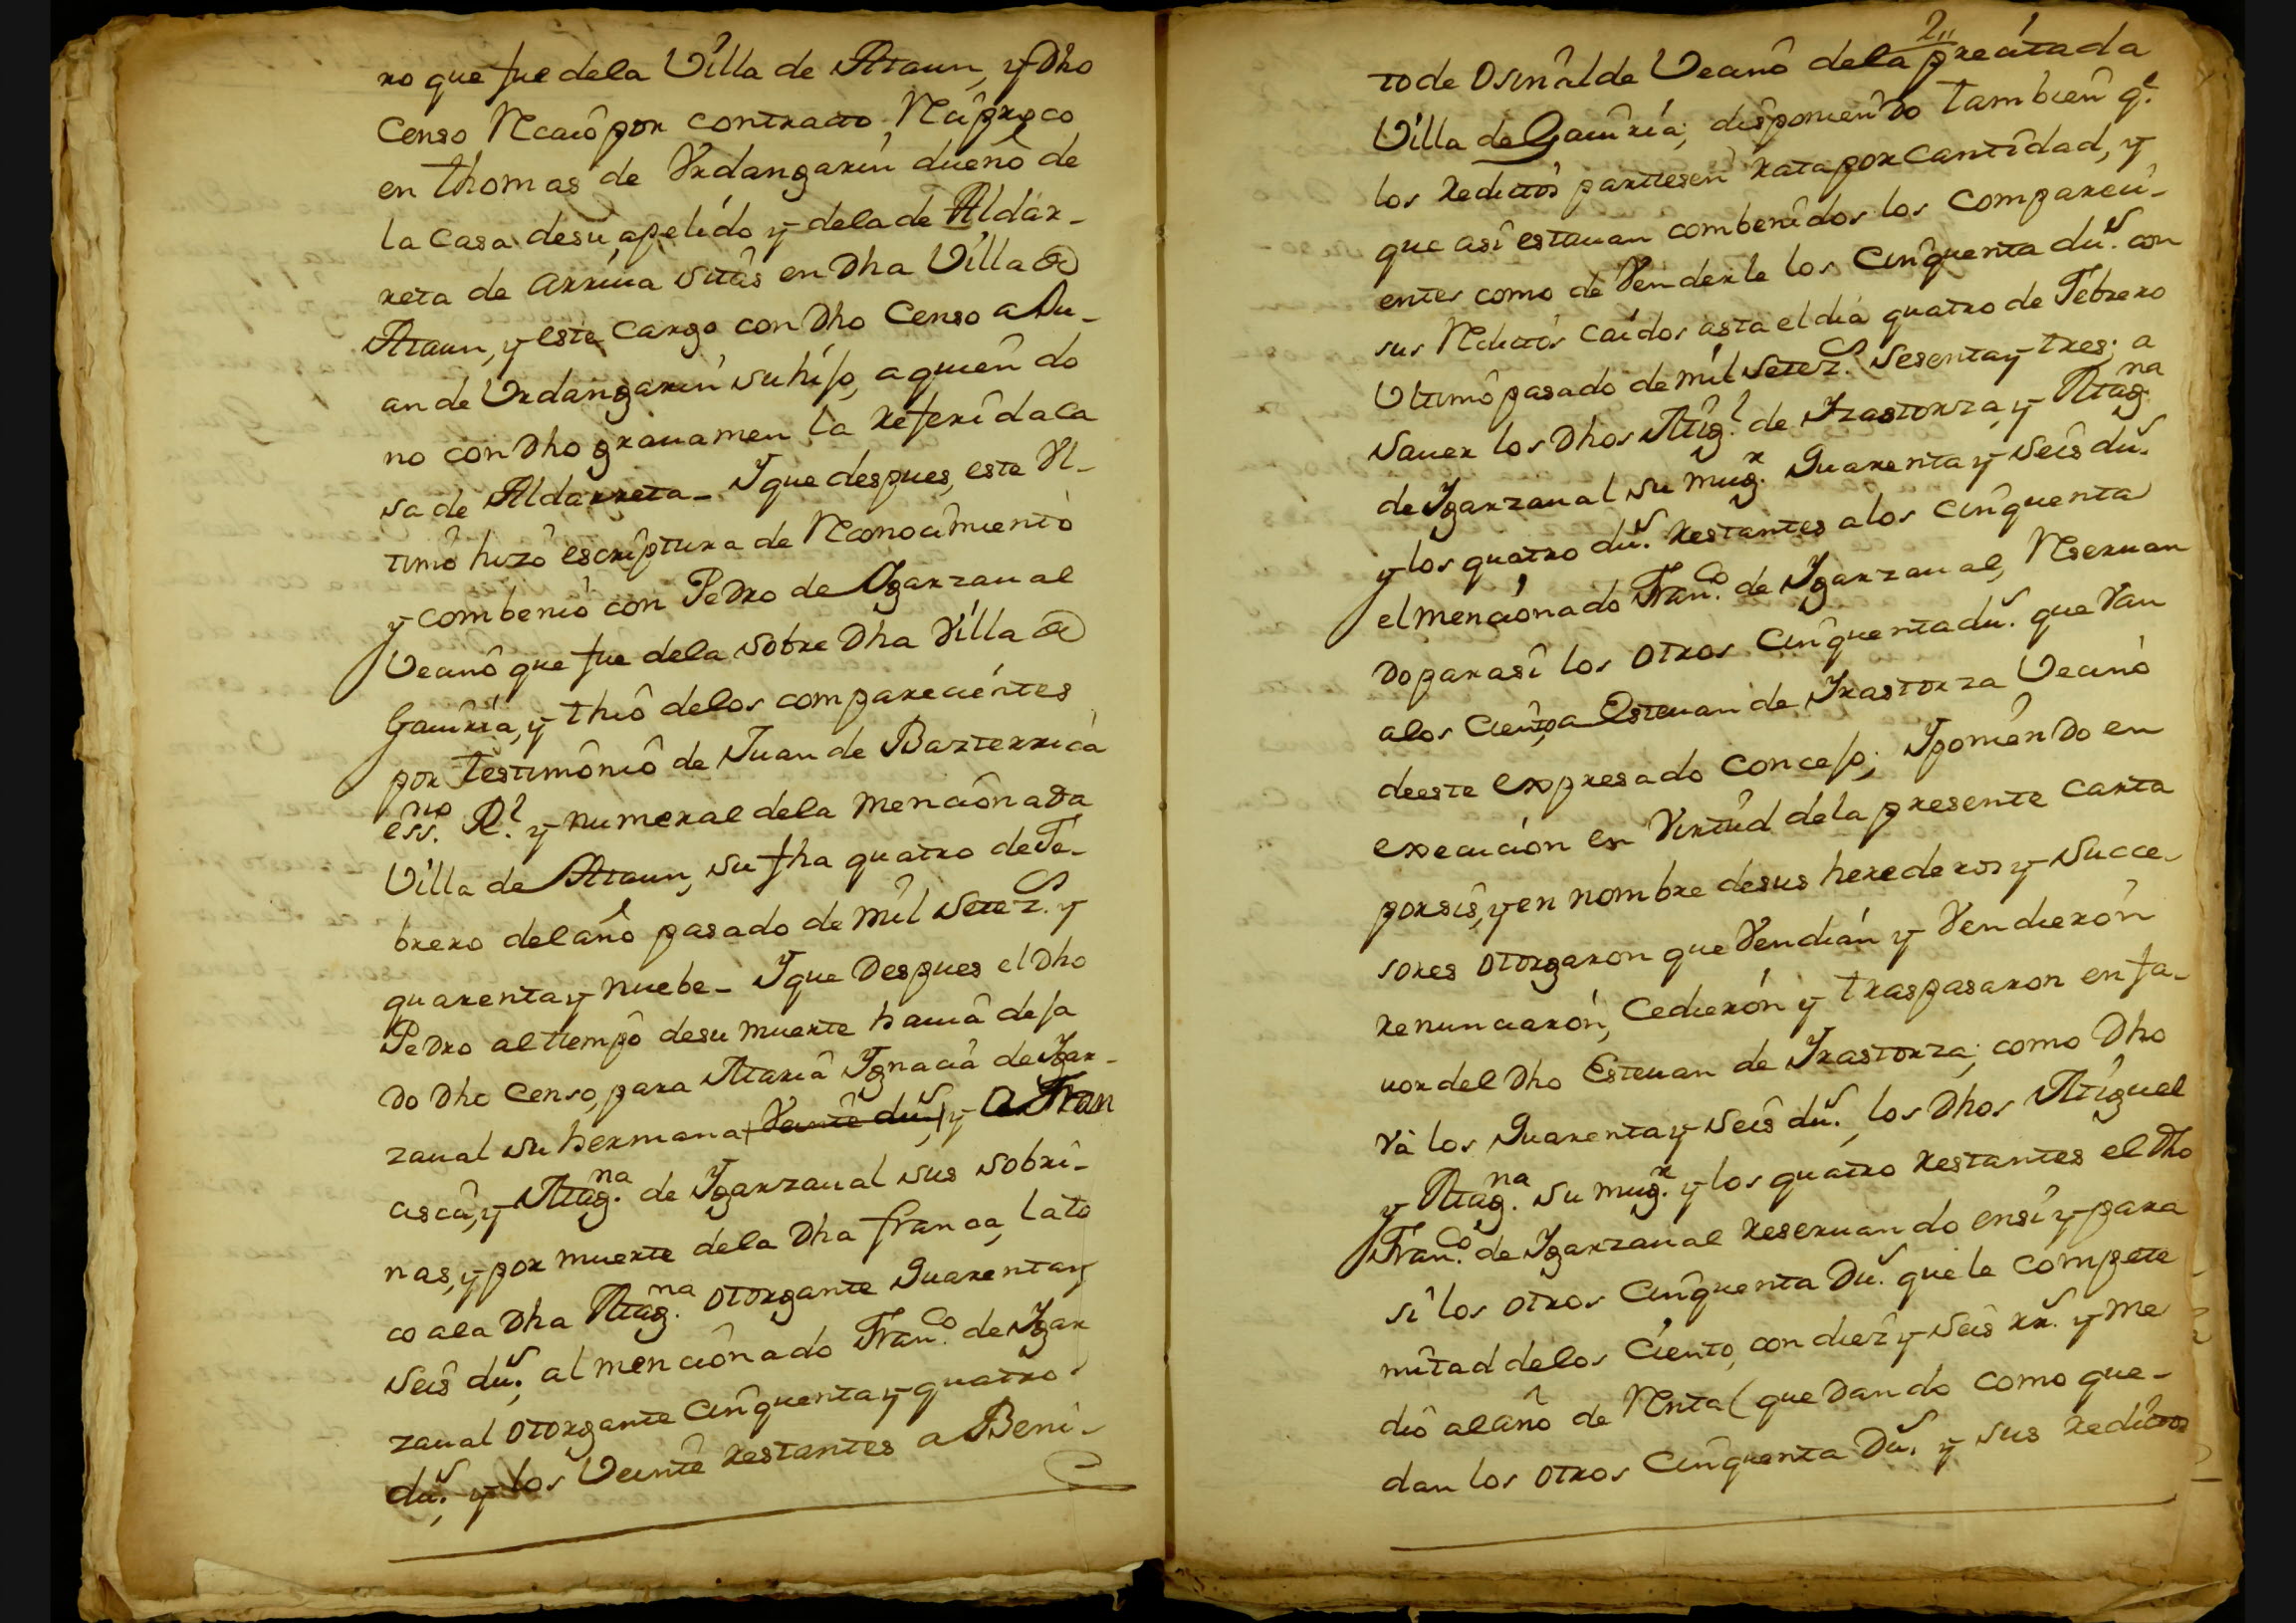 ro que fue dela Villa de Ataun, y Dho
Censo Recaiô por contracto Reciproco
en thomas de Vrdangarin dueño de
la Casa desu apelido y dela de Aldar-
reta de arriua Sitâs en Dha Villa de
Ataun, y este Cargo con Dho Censo a Ju-
an de Urdangarin su hijo, a quien do
no con Dho grauamen la referida Ca
sa de Aldarreta_ Y que despues, este Vl-
timô hizô escriptura de Reconocimiento
y combenio con Pedro de Ygarzaual
Vecinô que fue dela sobre Dha Villa de
Gauiria, y thiô delos comparecientes
por testimôniô de Juan de Bazterrica
essno. Rl. y numeral dela mencionada
Villa de Ataun, su fha quatro de Fe-
brero del año pasado de mil setezs. y
quarenta y nuebe_ Y que Despues el Dho
Pedro al tiempô desu muerte hauiâ deja
do Dho Censo, para Mariâ Ygnaciâ de Ygar-
zaual su hermana, Veinte dus. y a Fran
cisca, y Magna. de Ygarzaual sus sobri-
nas, y por muerte dela Dha franca, la to
co ala Dha Magna. otorgante quarenta y
seis dus., al mencionado Franco. de Ygar
zaual otorgante cinquenta y quatro
dus. y los Veinte restantes a Beni-
2,,
to de Osinalde Vecinô dela precitada
Villa de Gauiria; disponiendo tambien qe.
los reditos partiesen rata por Cantidad, y
que asi estauan combenidos los Compareci-
entes como de Venderle los Cinquenta dus. con
sus Reditos caidos asta el dia quatro de Febrero
Vltimô pasado de mil setezs. sesenta y tres; a
sauer los Dhos Migl. de Yrastorza, y Magna
de Ygarzaual su mugr. quarenta y seis dus.
y los quatro dus. restantes alos cinquenta
el mencionado Franco. de Ygarzaual, Reseruan
do para si los otros Cinquenta dus. que Van
alos Ciento, a Esteuan de Yrastorza Vecino
deeste expresado Concejo; Y poniendo en
execucion en Virtud dela presente carta
por sis, y en nombre desus herederos y Succe-
sores otorgaron que Vendian y Vendieron
renunciaron, Cedieron y traspasaron en fa-
uor del Dho Esteuan de Yrastorza; como Dho
Va los quarenta y seis dus., los Dhos Miguel
y Magna. su mugr. y los quatro restantes el Dho
Franco. de Ygarzaual reseruando ensi y para
si los otros Cinquenta Dus. que le compete
mitad delos Ciento, con diez y seis rrs. y me
diô al año de Renta (quedando como que-
dan los otros Cinquenta Dus. y sus reditos